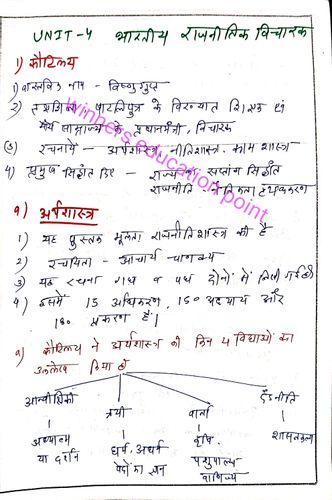 UNIT-4 भारतीय राजनीतिक विचारक
1) कौटिल्य
1) वास्तविक नाम - विष्णुगुप्त
2) तक्षशिला पाटलिपुत्र के विख्यात शिक्षक एवं
मौर्य साम्राज्य के प्रधानमंत्री, विचारक
(3) रचनायें - अर्थशास्त्र, नीतिशास्त्र, काम शास्त्र
4) प्रमुख सिद्धांत - राज्य का सप्तांग सिद्धांत
राजनीति - नैतिकता पृथक्करण
winners education point
१) अर्थशास्त्र
1) यह पुस्तक मूलतः राजनीतिशास्त्र की है
2) रचयिता - आचार्य चाणक्य
3) यह रचना गद्य व पद्य दोनों में लिखी गई है
4) इसमें 15 अधिकरण, 150 अध्याय और
180 प्रकरण हैं।
a) कौटिल्य ने अर्थशास्त्र की जिन 4 विद्याओं का
उल्लेख किया है
आन्वीक्षिकी त्रयी वार्ता दंडनीति
अध्यात्म धर्म, अधर्म कृषि शासनकला
या दर्शन वेदों का ज्ञान पशुपालन
वाणिज्य